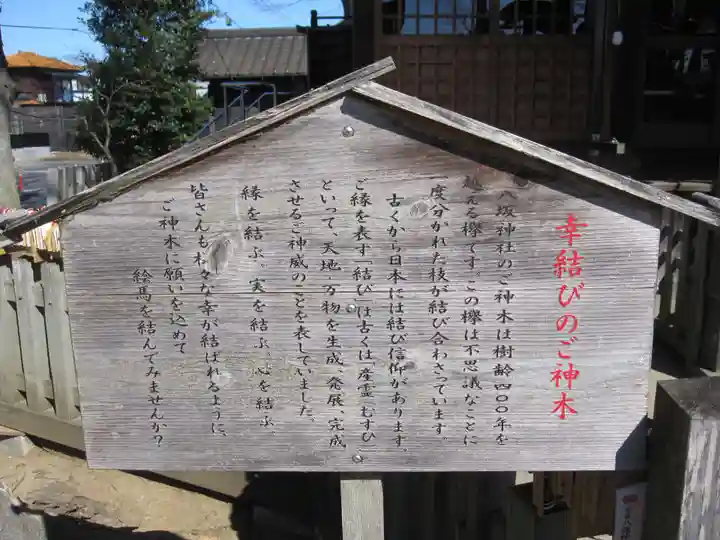 幸結びのご神木
八坂神社のご神木は樹齢四〇〇年を
越える欅です。この欅は不思議なことに
一度分かれた枝が結び合わさっています。
古くから日本には結び信仰があります。
ご縁を表す「結び」は古くは「産霊(むすひ)」
といって、天地・万物を生成、発展、完成
させるご神威のことを表していました。
縁を結ぶ。実を結ぶ。心を結ぶ。
皆さんも様々な幸が結ばれるように、
ご神木に願いを込めて
絵馬を結んでみませんか?